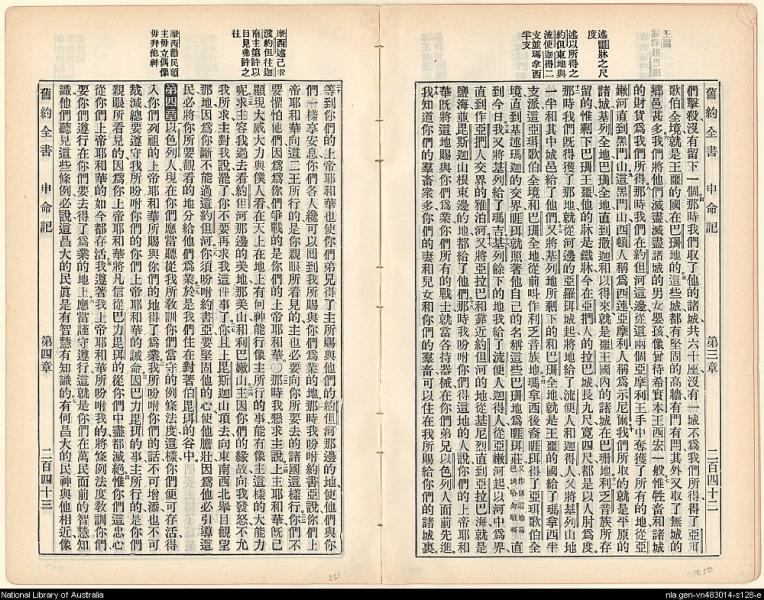 述鑑牀之尺
度
述以所得之
約但東地與
流便迦得二
支並瑪拿西
半支
舊約全書 申命記 第三章 二百四十二
們擊殺沒有留下一個那時我們取了他的諸城共六十座沒有一城不爲我們所得得了亞珥
歌伯全境就是王噩的國在巴珊地的這些城都有堅固的高牆有門有閂其外又取了無城的
鄉邑甚多我們將他們滅盡滅盡諸城的男女嬰孩像嘗待希實本王西宏一般惟牲畜和諸城
的財貨爲我們所得那時我們在約但河這邊從這兩個亞摩利王手中奪獲了所有的地從亞
嫩河直到黑門山這黑門山西頓人稱爲西連亞摩利人稱爲示尼爾我們所取的就是平原的
諸城基列全地巴珊全地直到撒迦和以得來就是噩王國內的諸城在巴珊地利乏音族所存
留的惟剩下巴珊王噩他的牀是鐵牀今在亞捫人的拉巴城長九尺寬四尺都是以人肘爲度
那時我們旣得獲了那地就從河邊的亞羅珥城起將地給了流便人和迦得人又將基列山地
一半和其中城邑給了他們又將基列地所剩下的和巴珊全地就是王噩的國給了瑪拿西半
支派這亞珥歌伯全境和巴珊全地從前叫作利乏音族地瑪拿西後裔睚珥得了亞珥歌伯全
境直到基述瑪迦的交界睚珥就照著他自己的名稱這些巴珊地爲睚珥莊直
到今日我又將基列給了瑪吉基列餘下的地我給了流便人迦得人從亞嫩河起以河中爲界
直到作亞捫人交界的雅泊河又將亞拉巴和靠近約但河的地從基尼烈直到亞拉巴海就是
鹽海並毘斯迦山根東邊的地都給了他們那時我吩咐你們得這地的人說你們的上帝耶和
華旣將這地賜與你們爲業你們所有的戰士就當各持器械在你們弟兄以色列人面前先進
我知道你們的羣畜衆多你們的妻和兒女和你們的羣畜可以住在我所賜給你們的諸城裏
摩西述己求
渡約但往迦
南主第許以
目見弗許之
往
摩西勸民順
主毋立偶像
毋拜他神
等到你們的上帝耶和華也使你們弟兄得了主所賜與他們的約但河那邊的地使他們與你
們一樣享安息你們各人纔可以回到我所賜與你們爲業的地那時我吩咐約書亞說你們上
帝耶和華向這二王所行的是你親眼所看見的主也必要向你所要去的諸國這樣行你們不
要懼怕他們因爲爲你們爭戰的是你們的上帝耶和華那時我懇求主說上主耶和華旣已
顯現大威大力與僕人看在天上在地上有何神能行像主所行的事能有像主這樣的大能力
呢求主容我過去看約但河那邊的美地那美山和利巴嫩山主因你們的緣故向我發怒不允
我所求主對我說罷了你不要再求我這件事了你且上毘斯迦山頂去向東南西北舉目觀望
那地因爲你斷不能過這約但河你須吩咐約書亞要堅固他的心使他膽壯因爲他必引導這
民必將你所要觀看的地分給他們爲業於是我們住在對著伯毘珥的谷中
第四章以色列人現在你們應當聽從我所教訓你們當守的例條法度這樣你們便可存活得
入你們列祖的上帝耶和華所賜與你們的地得了爲業我所吩咐你們的話不可增添也不可
裁減總要遵守我所吩咐你們的你們上帝耶和華的誡命因巴力毘珥的事主所行的是你們
親眼所看見的因爲你上帝耶和華將凡信從巴力毘珥的從你們中盡都滅絕惟你們這忠心
從你們上帝耶和華的如今都存活我遵著我上帝耶和華所吩咐我的將例條法度教訓你們
要你們遵行在你們要去得了爲業的地上應當謹守遵行這就是你們在萬民面前的智慧知
識他們聽見這些條例必說這昌大的民眞是有智慧有知識的有何昌大的民神與他相近像
舊約全書 申命記 第四章 二百四十三
251
250
National Library of Australia
nla.gen-vn483014-s128-e